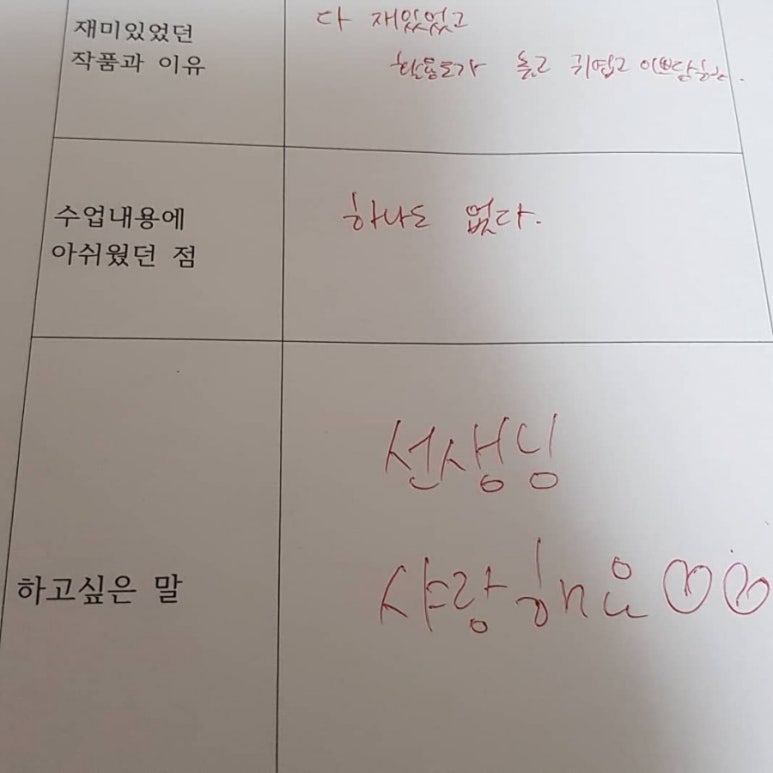 재미있었던
작품과 이유
다 재밌었고
활용도가 높고 귀엽고
수업내용에
아쉬웠던 점
하나도 없다.
하고싶은 말
선생닝
샤랑해요♡♡